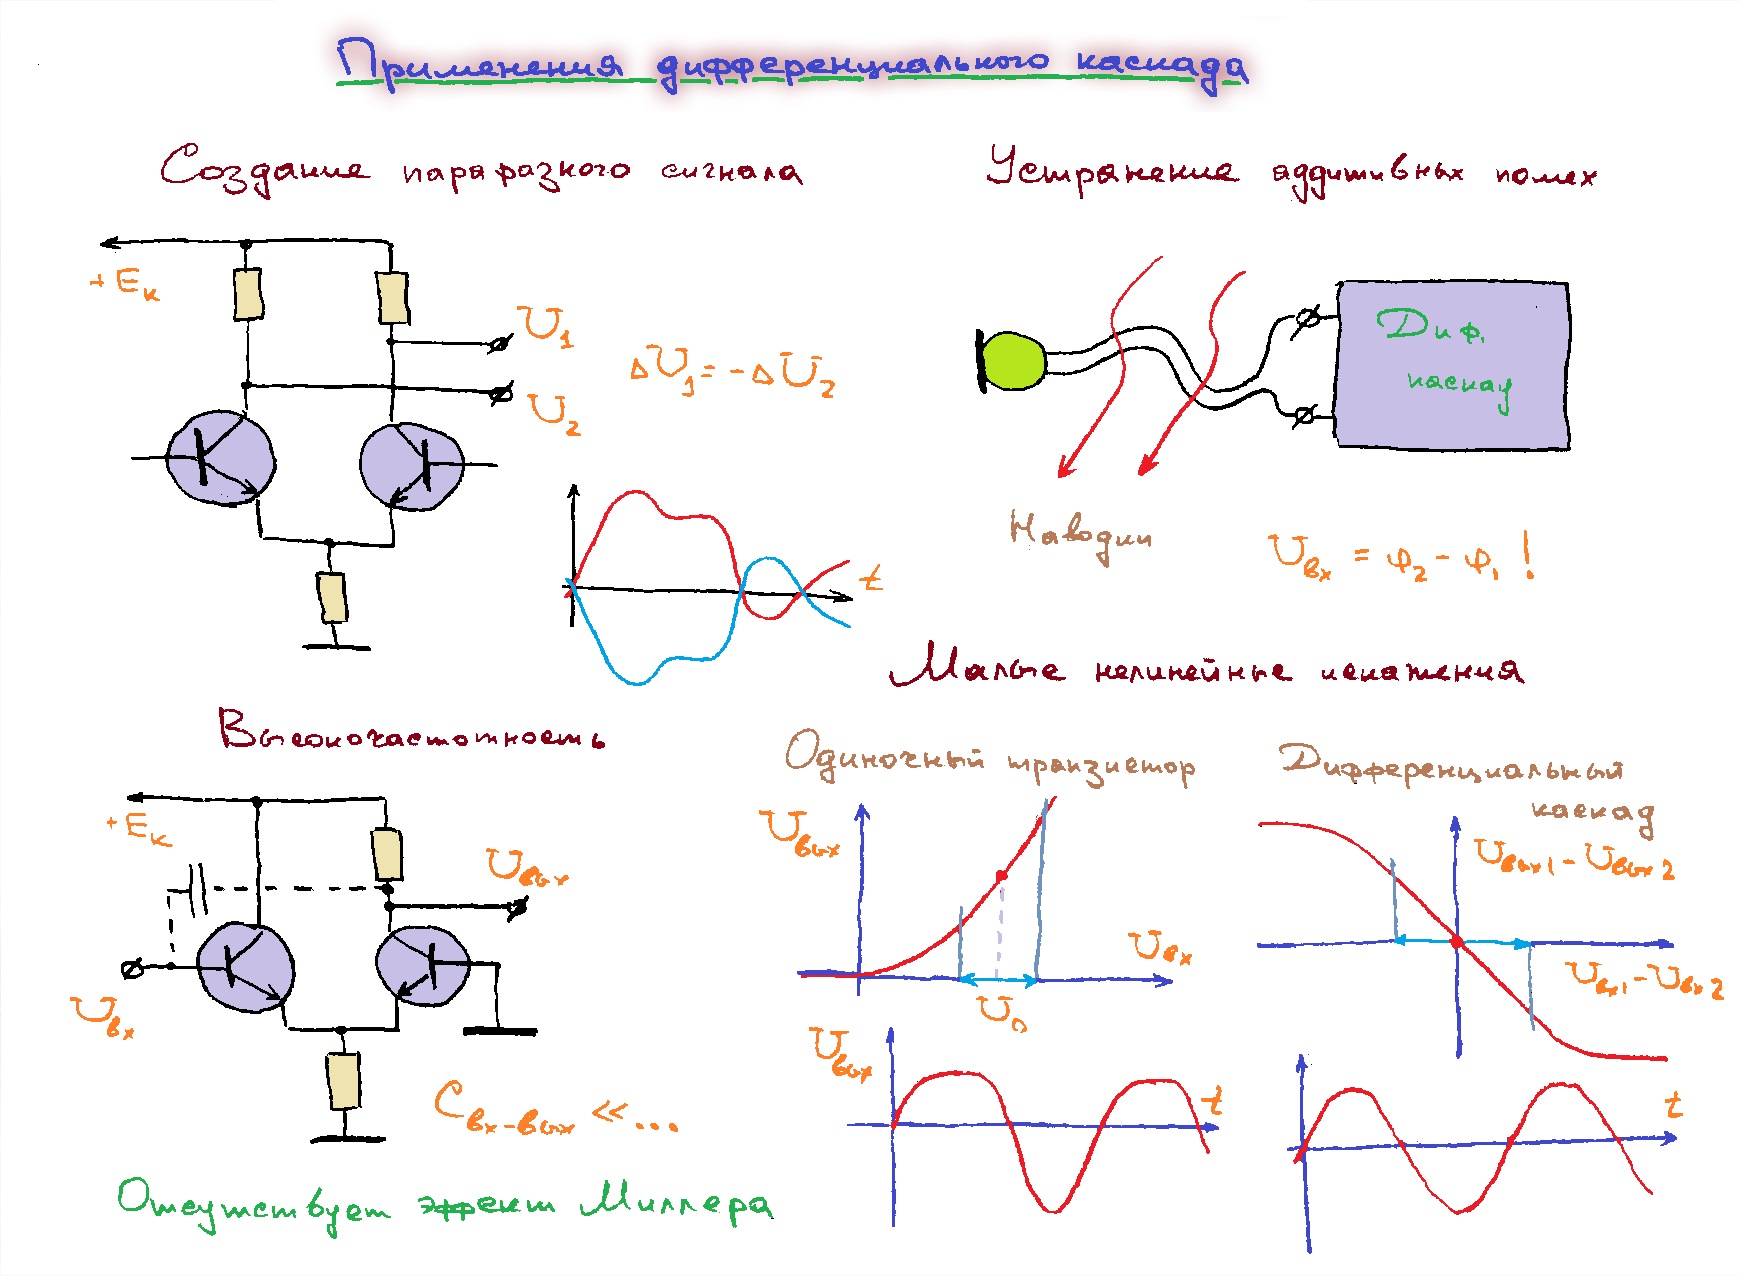 Применения дифференциального каскада
Создание парафазного сигнала
+ Eк
U1
U2
ΔU1 = -ΔU2
t
Устранение аддитивных помех
Диф.
каскад
Наводки
Uвх = φ2 - φ1 !
Высокочастотность
+ Eк
Uвых
Uвх
Cвх-вых << ...
Отсутствует эффект Миллера
Малые нелинейные искажения
Одиночный транзистор
Uвых
Uвх
U0
Uвых
t
Дифференциальный
каскад
Uвых1 - Uвых2
Uвх1 - Uвх2
t